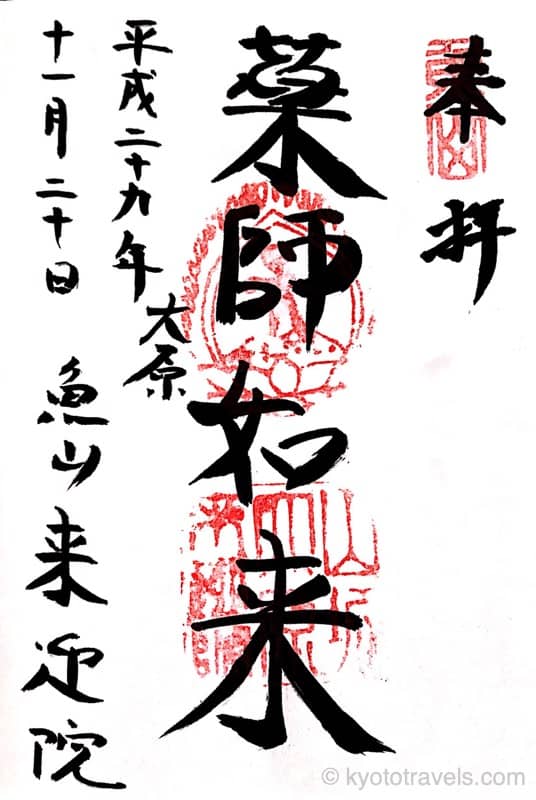 奉拝
薬師如来
平成二十九年
大原
十一月二十日
魚山来迎院
© kyototravels.com